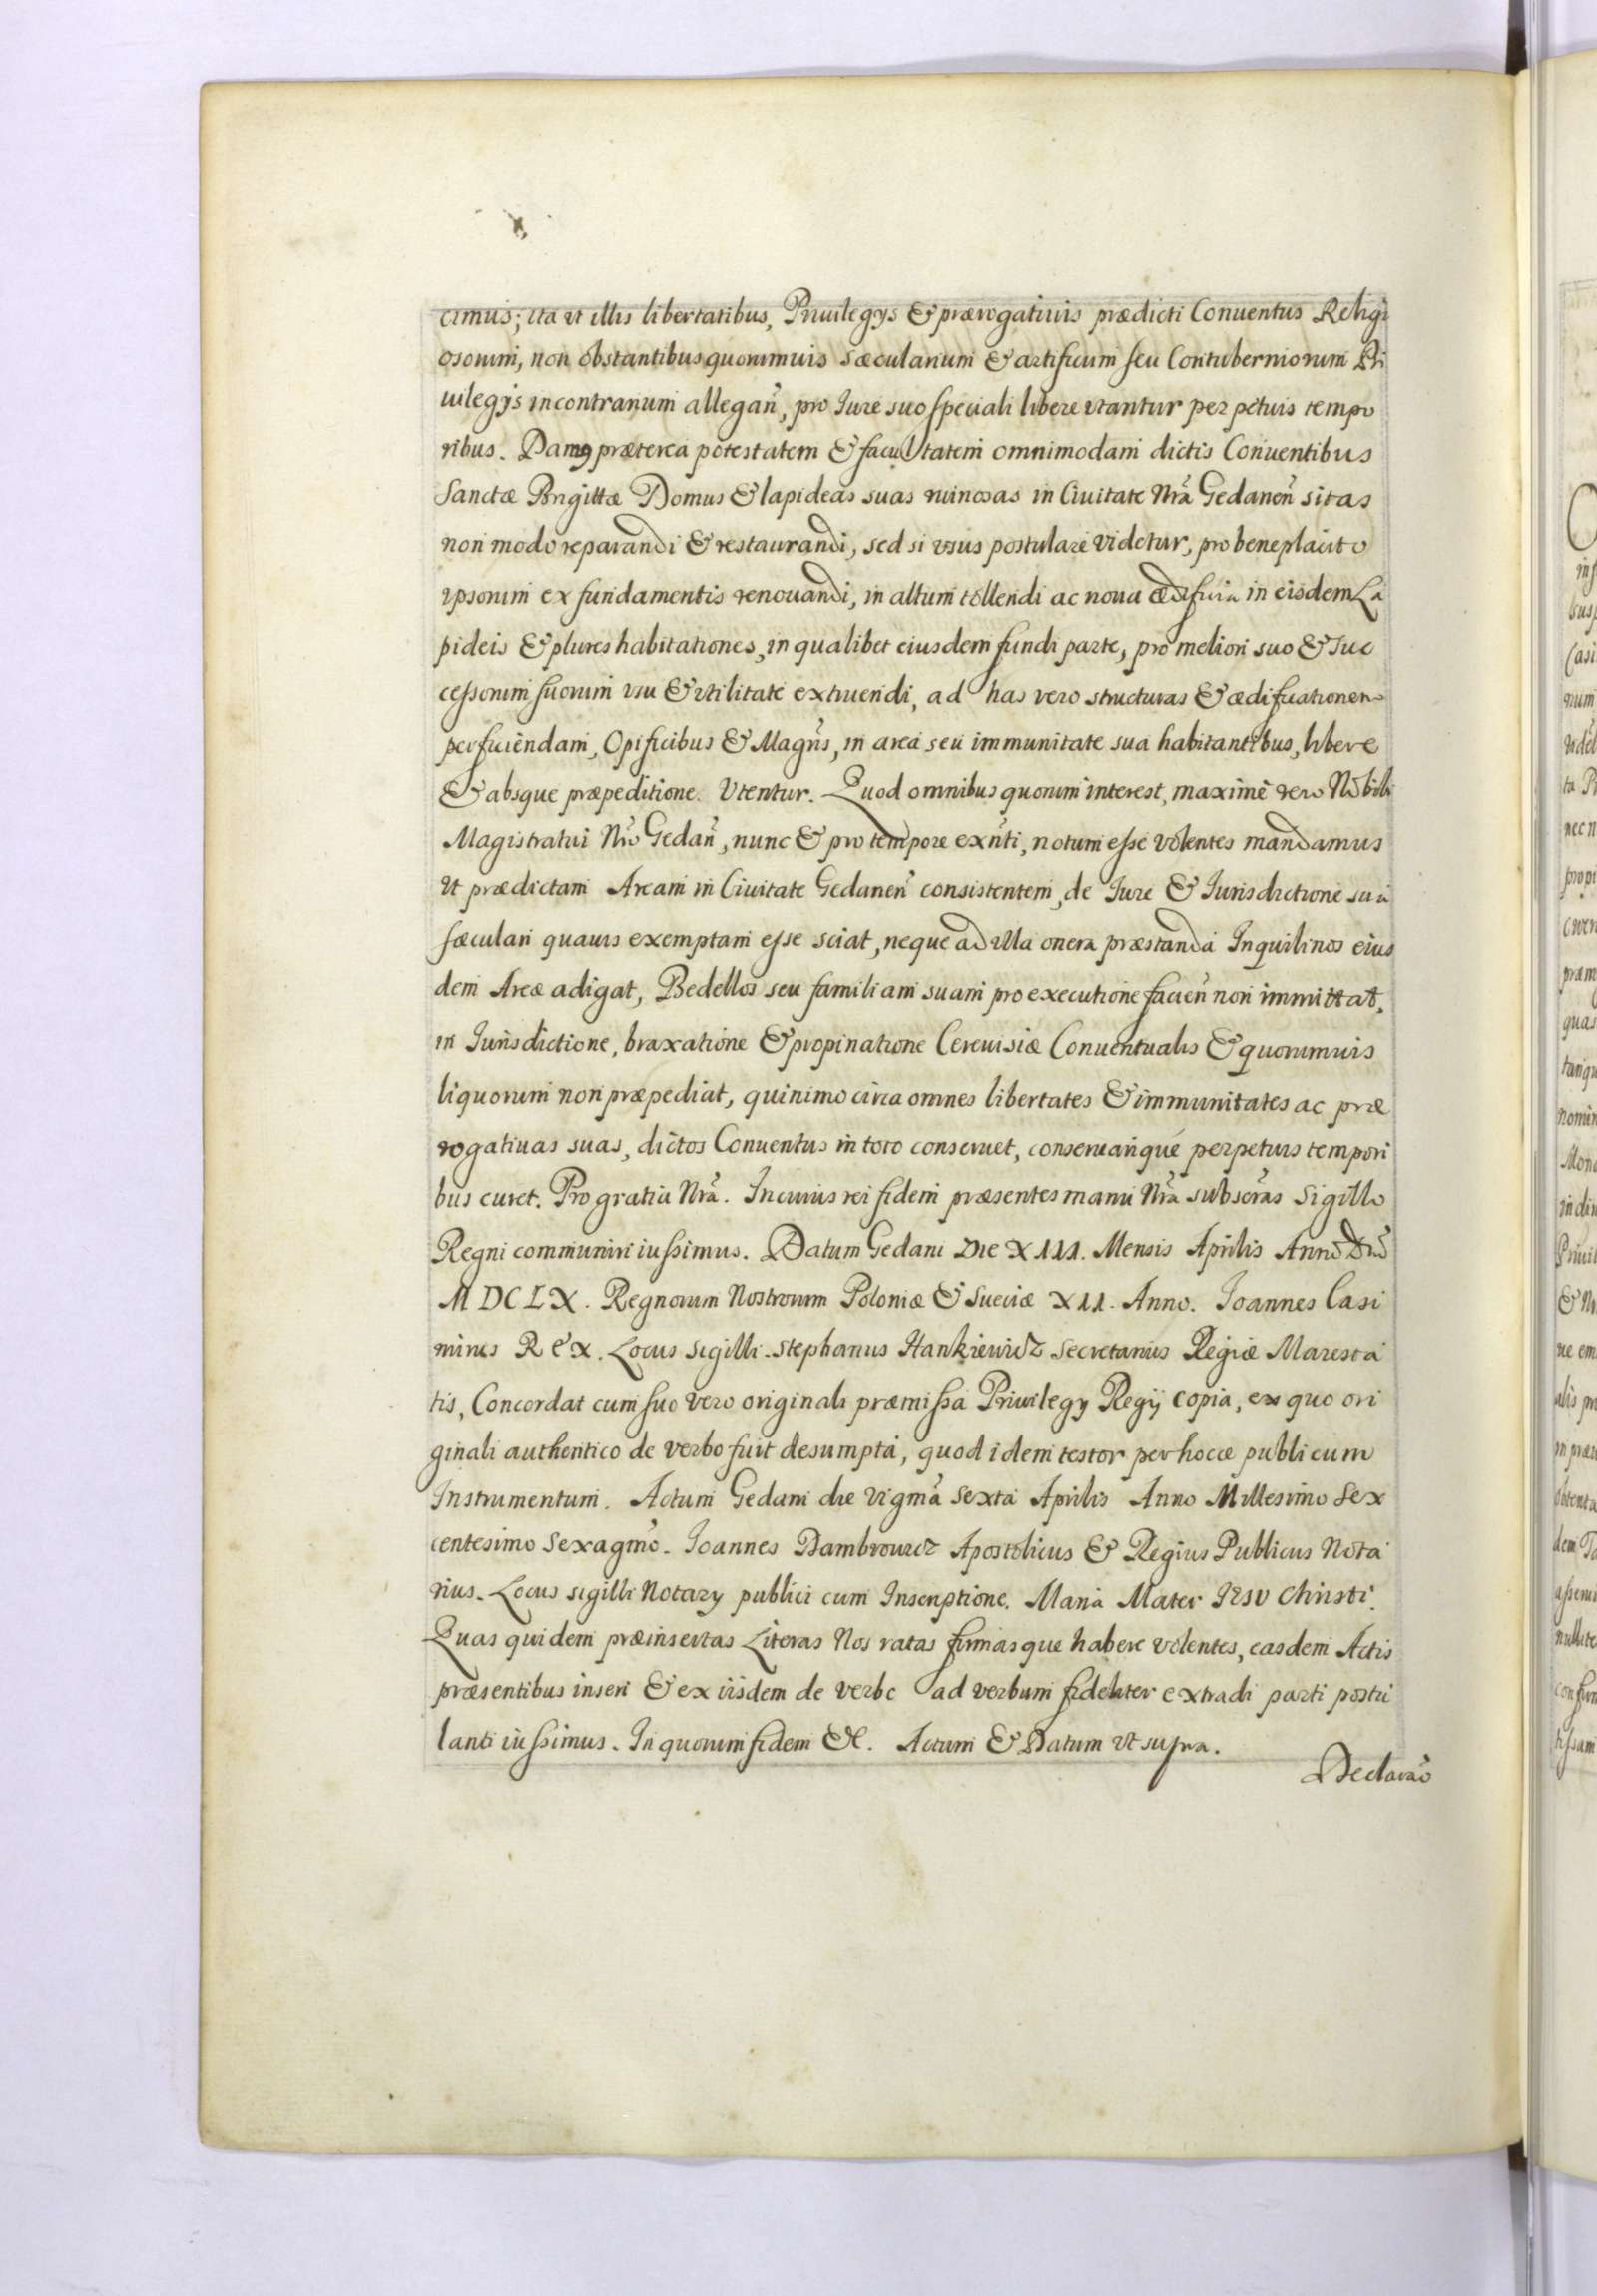 cimus; ita ut illis libertatibus, Priuilegys & prærogatiuis prædicti Conuentus Religi
osorum, non obstantibus quorumuis sæcularium & artificum seu Contuberniorum Pri
uilegijs in contrarium allegan̄, pro Jure suo speciali libere utantur perpetuis tempo
ribus. Damꝰ præterea potestatem & facultatem omnimodam dictis Conuentibus
Sanctæ Brigittæ Domus & lapideas suas ruinosas in Ciuitate Nrā Gedanen̄ sitas
non modo reparandi & restaurandi, sed si usus postulare videtur, pro beneplacito
ipsorum ex fundamentis renouandi, in altum tollendi ac noua ædificia in eisdem La
pideis & plures habitationes, in qualibet eiusdem fundi parte, pro meliori suo & suc
cessorum suorum usu & utilitate extruendi, ad has vero structuras & ædificationem
perficiendam, Opificibus & Magrīs, in area seu immunitate sua habitantibus, libere
& absque præpeditione. Utentur. Quod omnibus quorum interest, maximè vero Nobili
Magistratui Nrō Gedan̄, nunc & pro tempore exn̄ti, notum esse volentes mandamus
ut prædictam Aream in Ciuitate Gedanen̄ consistentem, de Jure & Jurisdictione sua
sæculari quauis exemptam esse sciat, neque ad illa onera præstanda Inquilinos eius
dem Areæ adigat, Bedellos seu familiam suam pro executione facien̄ non immittat,
in Jurisdictione, braxatione & propinatione Cereuisiæ Conuentualis & quorumuis
liquorum non præpediat, quinimo circa omnes libertates & immunitates ac præ
rogatiuas suas, dictos Conuentus in toto conseruet, conseruarique perpetuis tempori
bus curet. Pro gratia Nrā. In cuius rei fidem præsentes manu Nrā subscrās Sigillo
Regni communiri iussimus. Datum Gedani Die XIII. Mensis Aprilis Anno Dnī
MDCLX. Regnorum Nostrorum Poloniæ & Sueciæ XII. Anno. Joannes Casi
mirus Rex. Locus sigilli. Stephanus Hankiewicz Secretarius Regiæ Maiesta
tis, Concordat cum suo vero originali præmissa Priuilegy Regij copia, ex quo ori
ginali authentico de verbo fuit desumpta, quod idem testor per hocce publicum
Instrumentum. Actum Gedani die vigmā sexta Aprilis Anno Millesimo Sex
centesimo Sexagmō. Joannes Dambrowicz Apostolicus & Regius Publicus Nota
rius. Locus sigilli Notary publici cum Inscriptione. Maria Mater Jesu Christi.
Quas quidem præinsertas Literas Nos ratas firmasque habere volentes, easdem Actis
præsentibus inseri & ex iisdem de verbo ad verbum fideliter extradi parti postu
lanti iussimus. In quorum fidem &c. Actum & Datum ut supra.
Declarāo